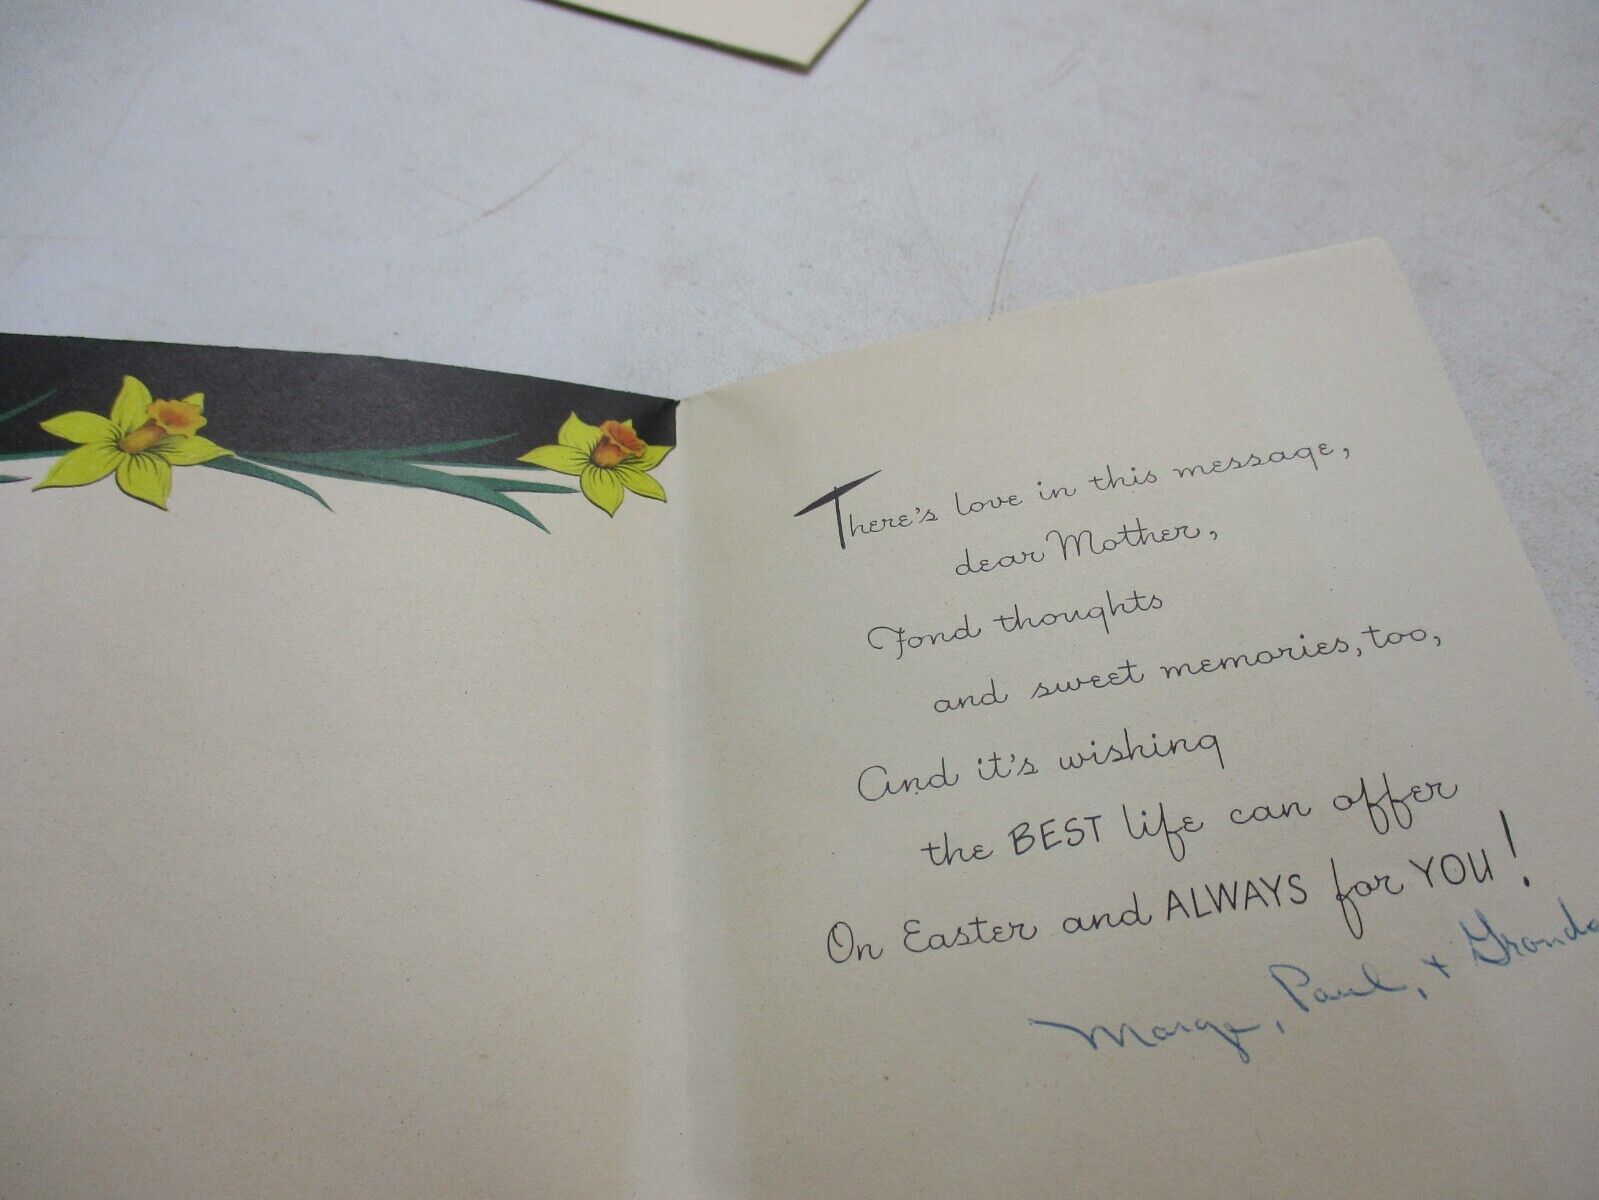 There's love in this message,
dear Mother,
Fond thoughts
and sweet memories, too,
And it's wishing
the BEST life can offer
On Easter and ALWAYS for YOU!
Marge, Paul, +